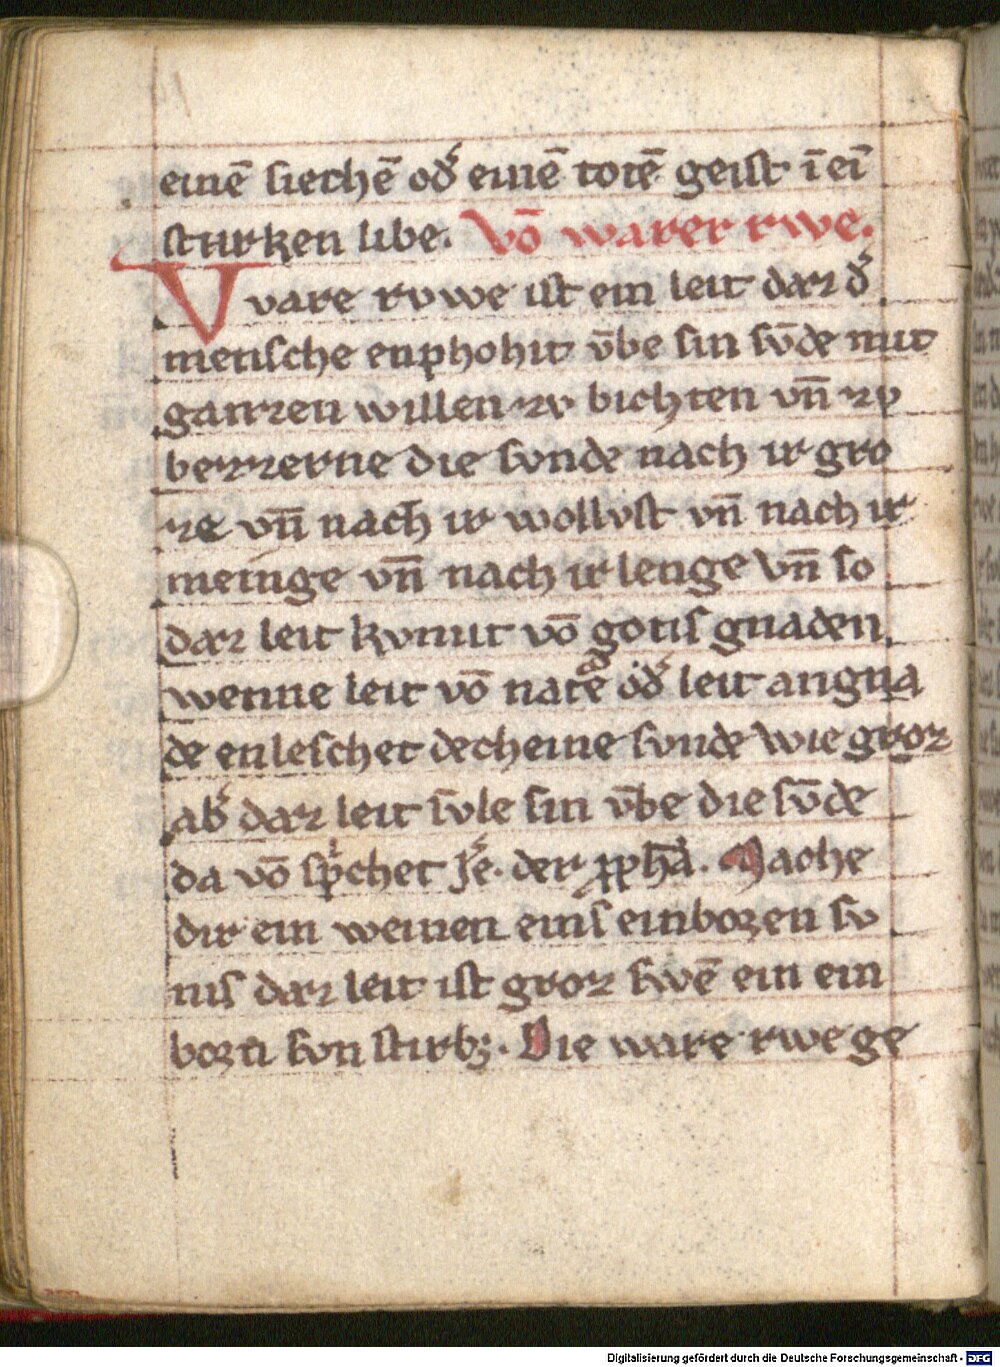 einē siechē od͛ einē totē geist ī eī
starken libe. Vō warer rwe.
Vvare rvwe ist ein leit daz d͛
mensche enphohit v̄be sin sv̄de mit
ganzen willen zv bichten vn̄ zv
bezzerne die svnde nach ir gro
ze vn̄ nach ir wollvst vn̄ nach ir
meinge vn̄ nach ir lenge vn̄ so
daz leit kvmit vō gotis gnaden
wenne leit vō natē od͛ leit an gna
de enleschet decheine svnde wie groz
ab͛ daz leit svle sin v̄be die sv̄de
da vō spͥchet Je͛. der ꝓph̄a. Mache
dir ein weinen einis einbozen sv
nis daz leit ist groz swē ein ein
bozn svn stirbꝫ. Die ware rwe ge
Digitalisierung gefördert durch die Deutsche Forschungsgemeinschaft - DFG